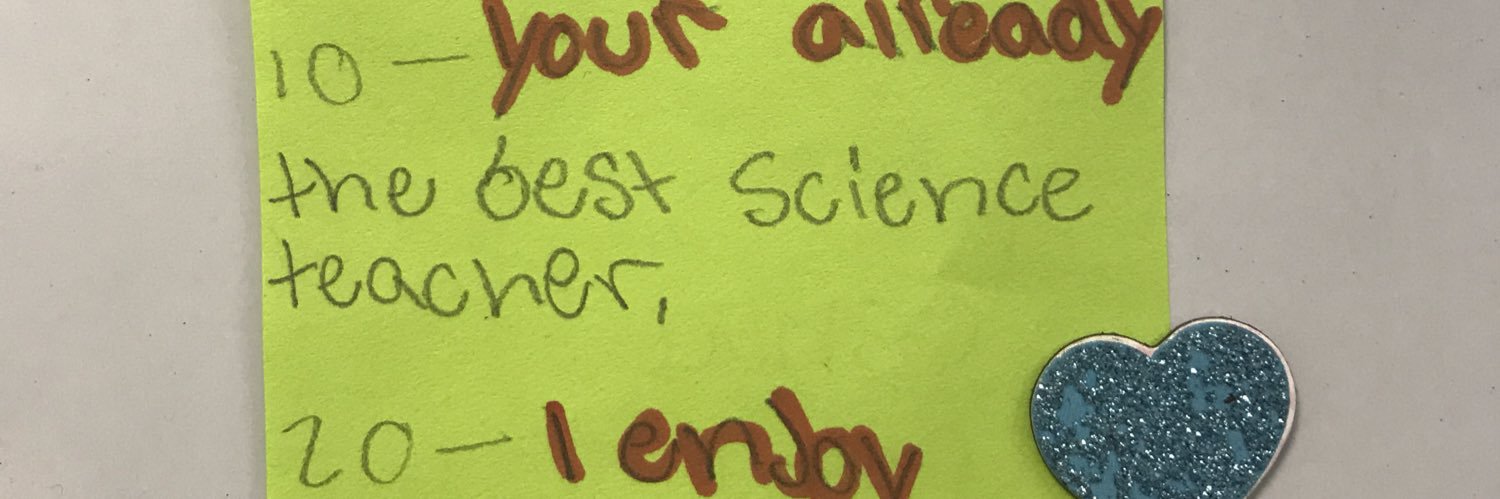 10 – your already
the best Science
teacher,
20 – I enjoy